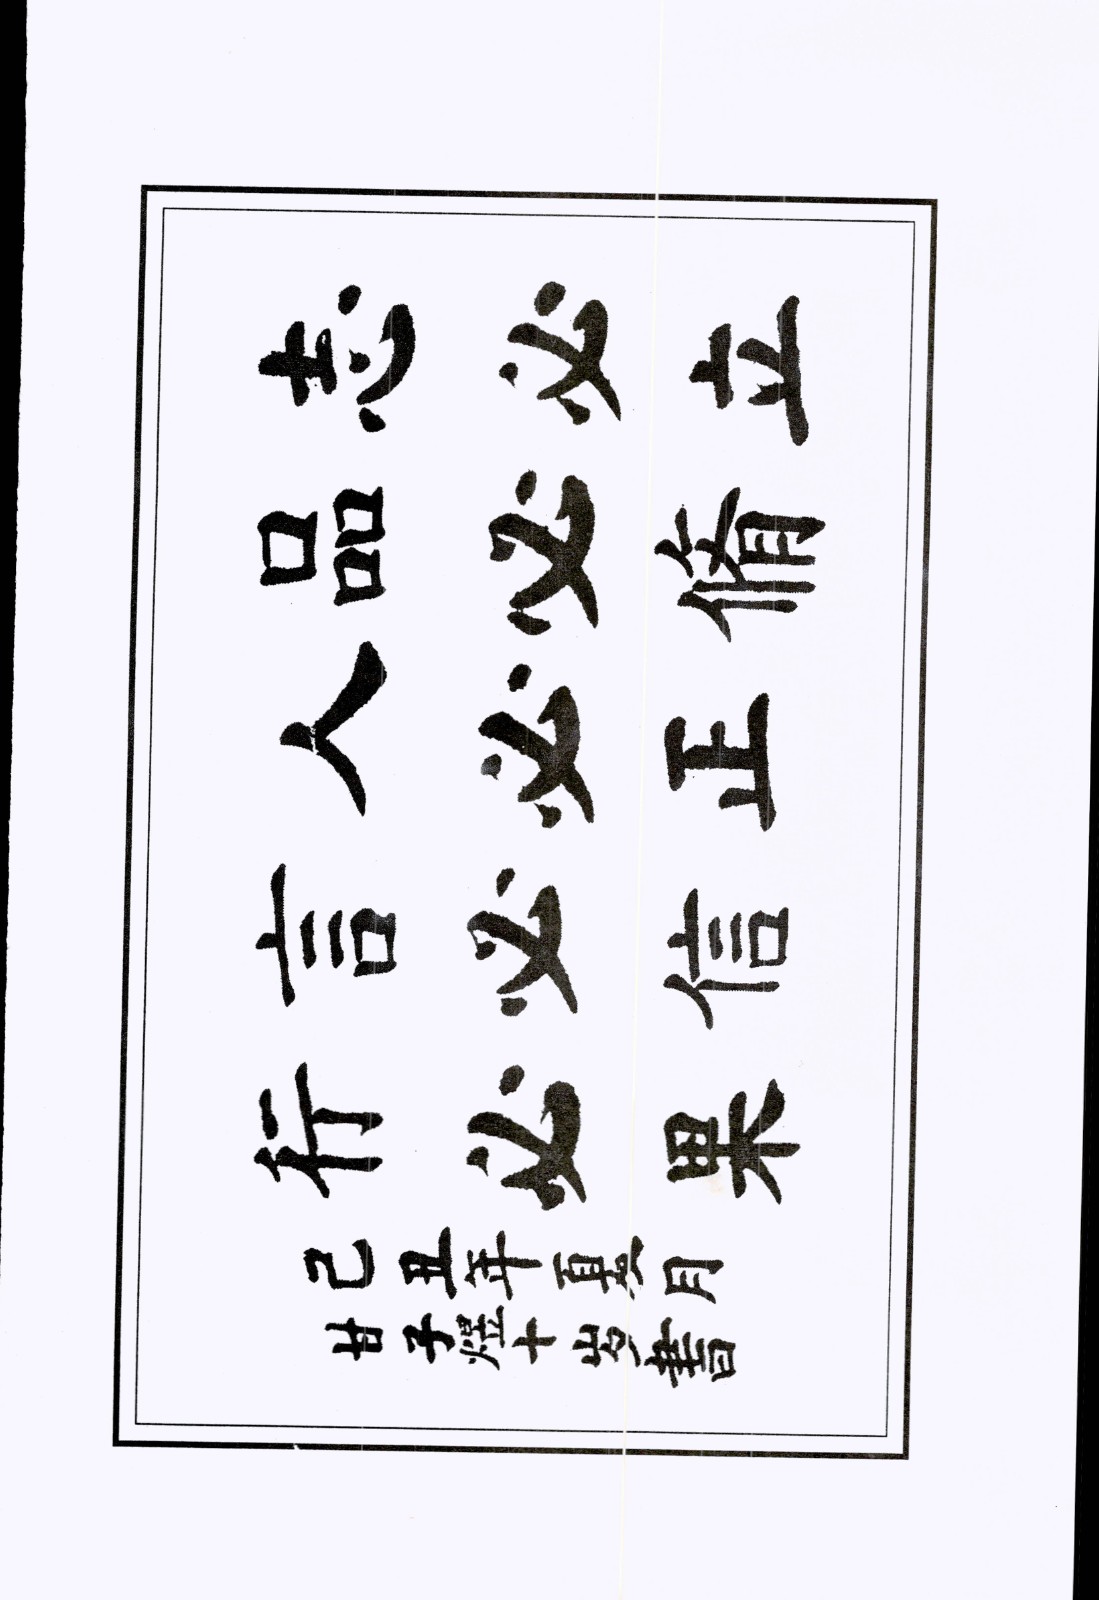 志必立
品必脩
人必正
言必信
行必果
己丑年夏月
甘子煜十岁書